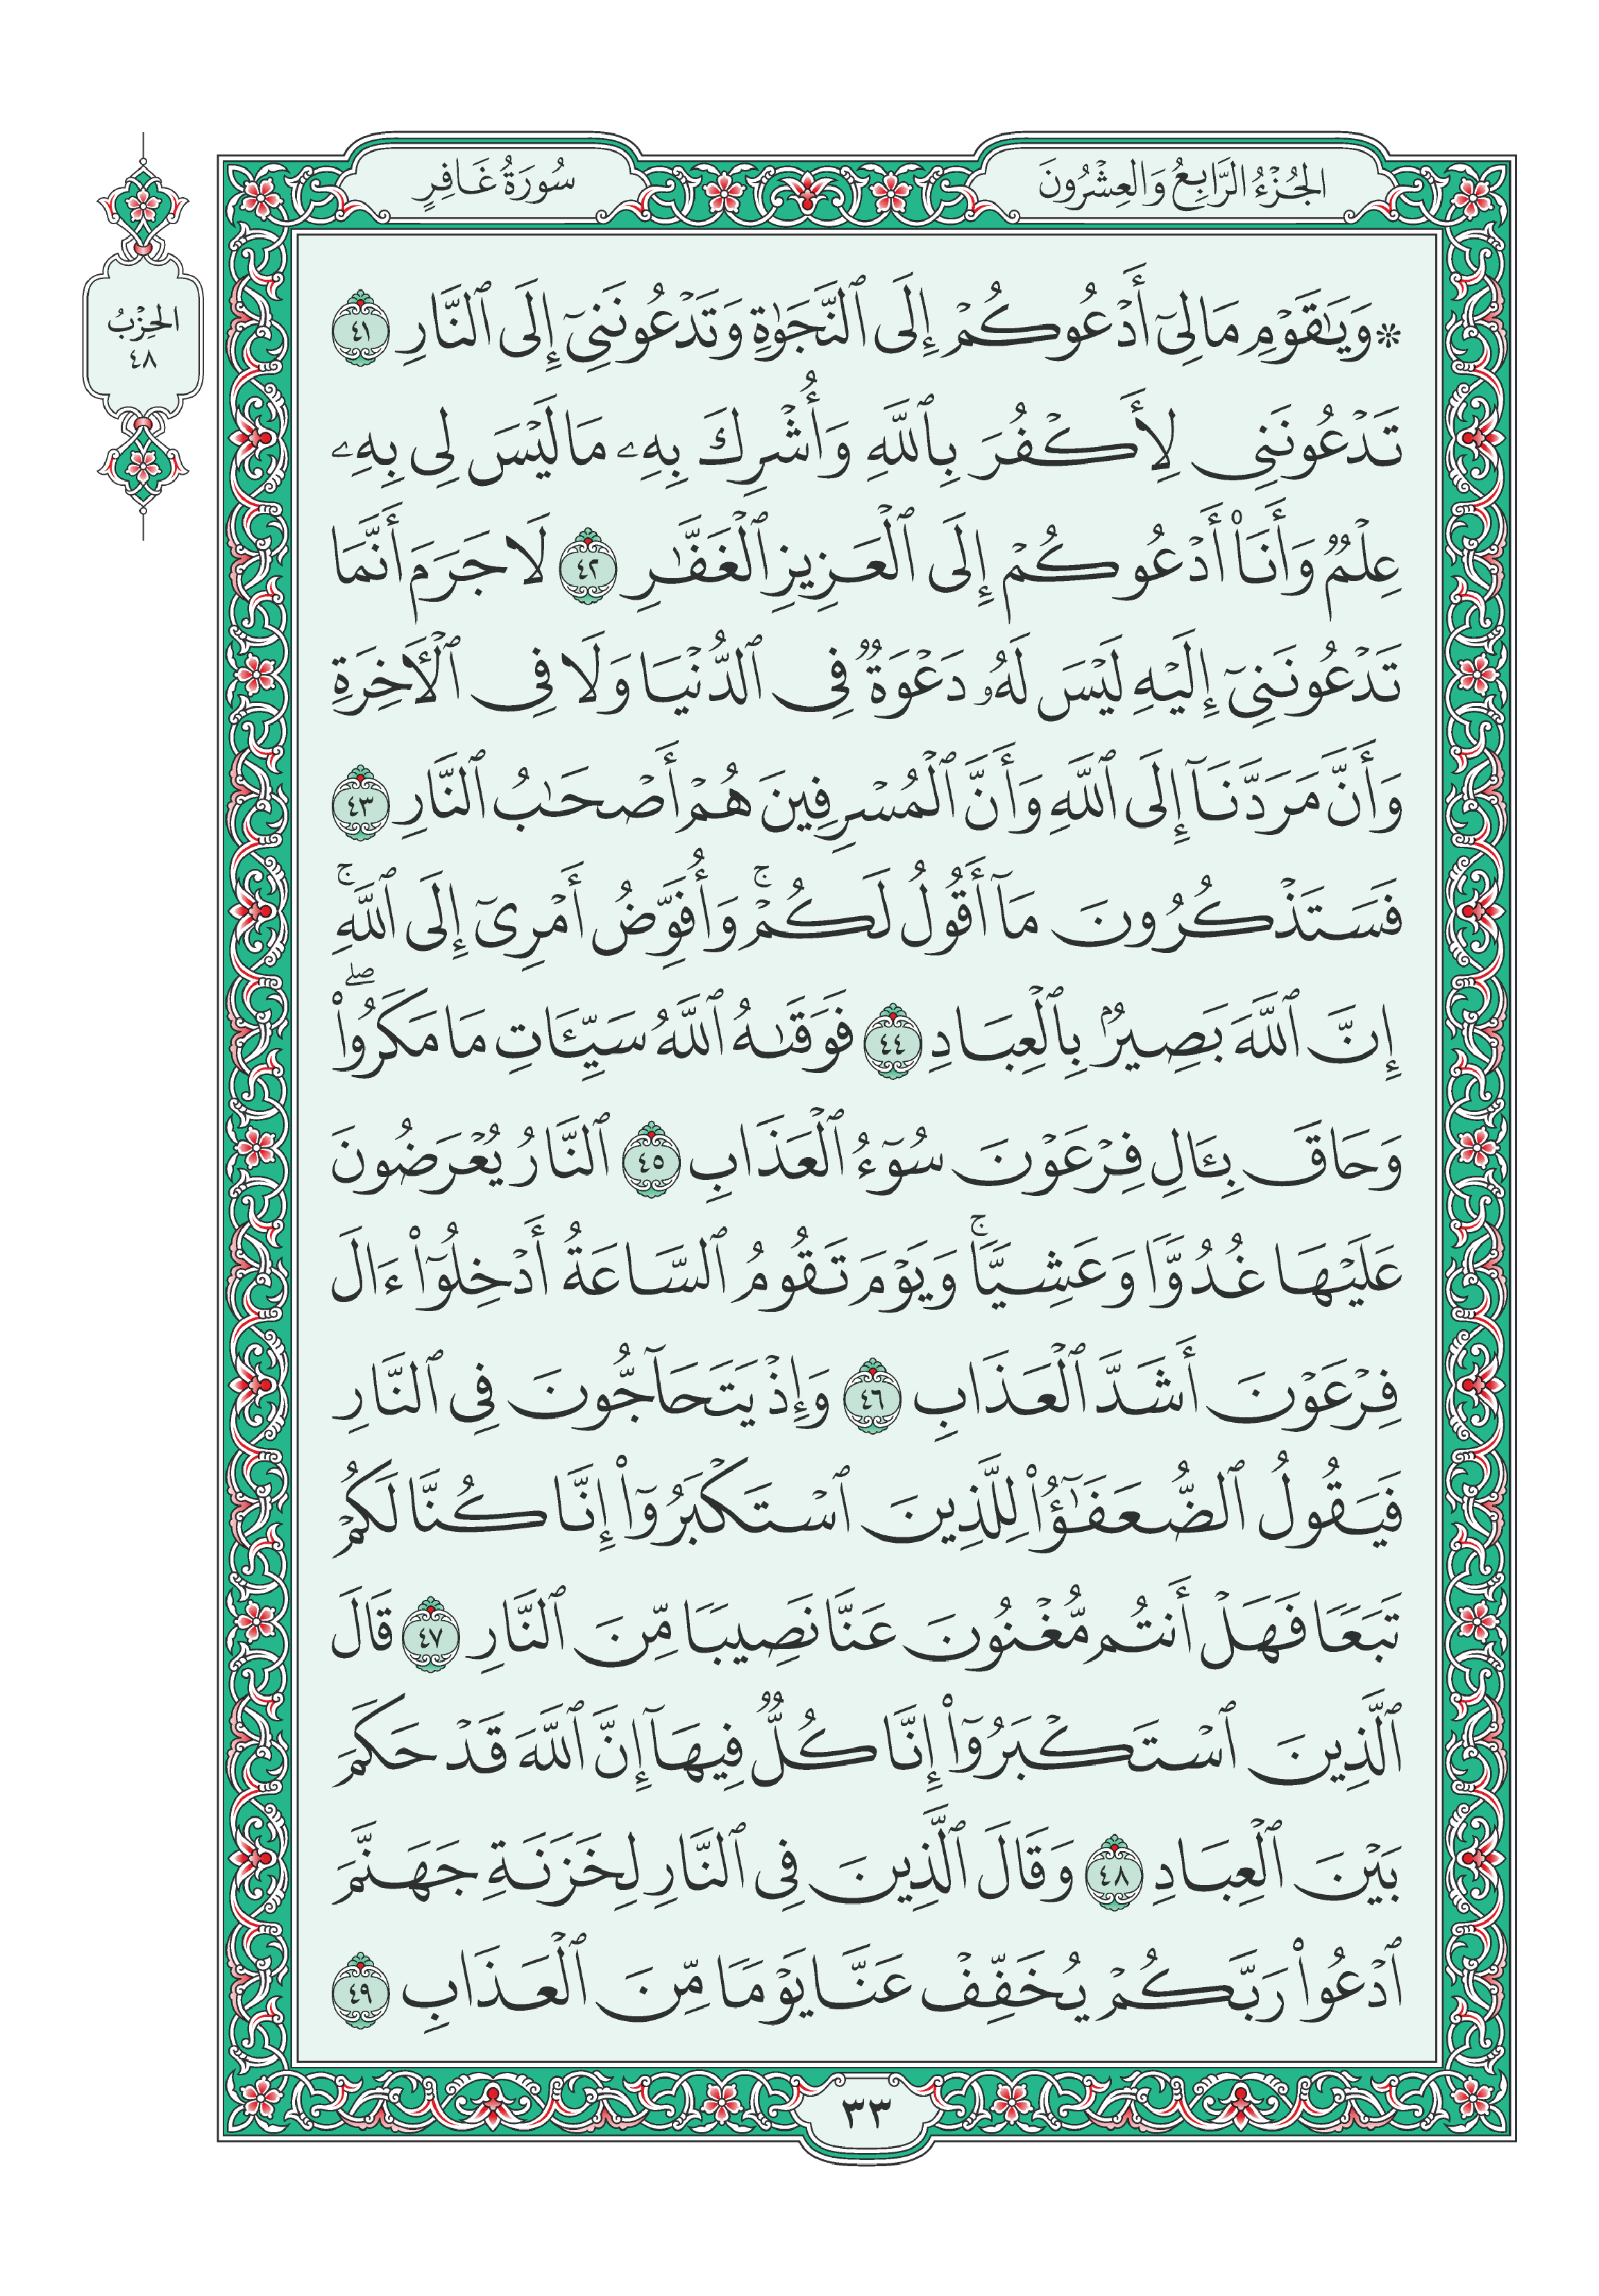 الجُزْءُ الرَّابِعُ وَالعِشْرُونَ
سُورَةُ غَافِرٍ
الحِزْبُ
٤٨
۞ وَيَٰقَوْمِ مَا لِىٓ أَدْعُوكُمْ إِلَى ٱلنَّجَوٰةِ وَتَدْعُونَنِىٓ إِلَى ٱلنَّارِ ٤١
تَدْعُونَنِى لِأَكْفُرَ بِٱللَّهِ وَأُشْرِكَ بِهِۦ مَا لَيْسَ لِى بِهِۦ
عِلْمٌ وَأَنَا۠ أَدْعُوكُمْ إِلَى ٱلْعَزِيزِ ٱلْغَفَّٰرِ ٤٢ لَا جَرَمَ أَنَّمَا
تَدْعُونَنِىٓ إِلَيْهِ لَيْسَ لَهُۥ دَعْوَةٌ فِى ٱلدُّنْيَا وَلَا فِى ٱلْأٓخِرَةِ
وَأَنَّ مَرَدَّنَآ إِلَى ٱللَّهِ وَأَنَّ ٱلْمُسْرِفِينَ هُمْ أَصْحَٰبُ ٱلنَّارِ ٤٣
فَسَتَذْكُرُونَ مَآ أَقُولُ لَكُمْۚ وَأُفَوِّضُ أَمْرِىٓ إِلَى ٱللَّهِۚ
إِنَّ ٱللَّهَ بَصِيرٌۢ بِٱلْعِبَادِ ٤٤ فَوَقَىٰهُ ٱللَّهُ سَيِّـَٔاتِ مَا مَكَرُوا۟ۖ
وَحَاقَ بِـَٔالِ فِرْعَوْنَ سُوٓءُ ٱلْعَذَابِ ٤٥ ٱلنَّارُ يُعْرَضُونَ
عَلَيْهَا غُدُوًّا وَعَشِيًّاۚ وَيَوْمَ تَقُومُ ٱلسَّاعَةُ أَدْخِلُوٓا۟ ءَالَ
فِرْعَوْنَ أَشَدَّ ٱلْعَذَابِ ٤٦ وَإِذْ يَتَحَآجُّونَ فِى ٱلنَّارِ
فَيَقُولُ ٱلضُّعَفَٰٓؤُا۟ لِلَّذِينَ ٱسْتَكْبَرُوٓا۟ إِنَّا كُنَّا لَكُمْ
تَبَعًا فَهَلْ أَنتُم مُّغْنُونَ عَنَّا نَصِيبًا مِّنَ ٱلنَّارِ ٤٧ قَالَ
ٱلَّذِينَ ٱسْتَكْبَرُوٓا۟ إِنَّا كُلٌّ فِيهَآ إِنَّ ٱللَّهَ قَدْ حَكَمَ
بَيْنَ ٱلْعِبَادِ ٤٨ وَقَالَ ٱلَّذِينَ فِى ٱلنَّارِ لِخَزَنَةِ جَهَنَّمَ
ٱدْعُوا۟ رَبَّكُمْ يُخَفِّفْ عَنَّا يَوْمًا مِّنَ ٱلْعَذَابِ ٤٩
٣٣